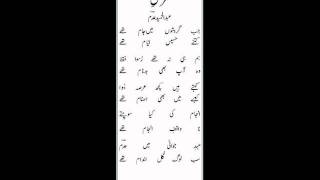 عبدالحمید عدم
جب گردشوں میں جام تھے
کتنے حسیں ایام تھے
ہم ہی نہ تھے رسوا فقط
وہ آپ بھی بدنام تھے
کہتے ہیں کچھ عرصہ ہوا
کعبے میں بھی اصنام تھے
انجام کی کیا سوچتے
نا واقف انجام تھے
عہد جوانی میں عدم
سب لوگ گل اندام تھے